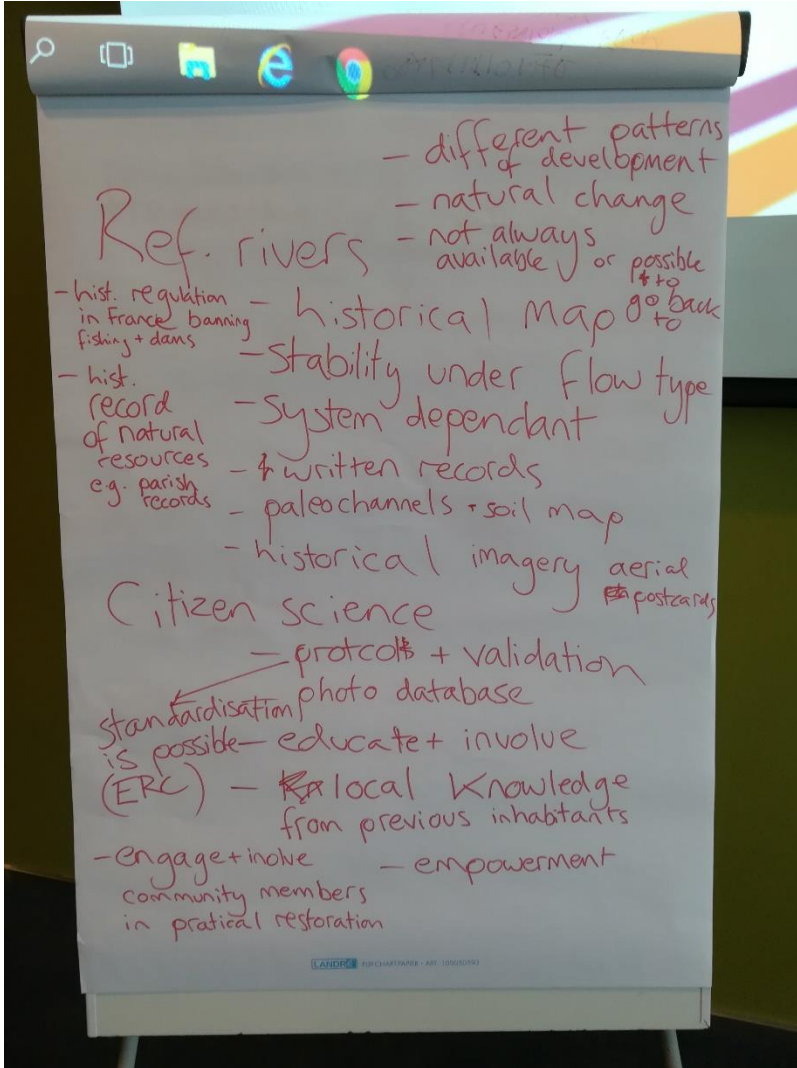 - different patterns
of development
- natural change
- not always
available or possible
to
go back
to
Ref. rivers
- hist. regulation
in France banning
fishing + dams
- hist.
record
of natural
resources
e.g. parish
records
- historical map
- Stability under flow type
- System dependant
- written records
- paleochannels + soil map
- historical imagery aerial
postcards
Citizen science
- protcols + validation
photo database
standardisation
is possible
(ERC)
- educate + involve
- local knowledge
from previous inhabitants
- engage + inolve
community members
in pratical restoration
- empowerment
LANDRÉ